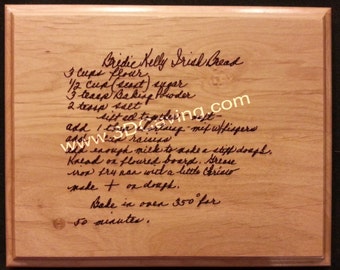 Bridie Kelly Irish Bread
3 cups flour
1/2 cup (scant) sugar
3 teasp Baking Powder
2 teasp salt
sifted together
add 1
add raisins
add enough milk to make a stiff dough.
Knead on floured board. Grease
iron fry pan with a little Crisco
make + on dough.
Bake in oven 350° for
50 minutes.
www.SDCarving.com